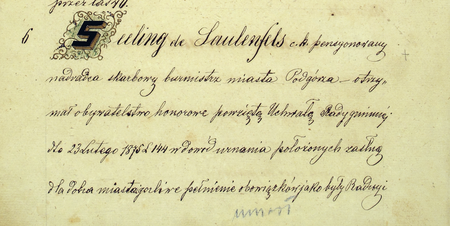 przez lat 40.
6 Seeling de Saulenfels c. k. pensyonowany
nadradca skarbowy burmistrz miasta Podgórza – otrzy-
mał obywatelstwo honorowe powziętą Uchwałą Rady gminnej
dto 23 Lutego 1875 L 144 w dowód uznania położonych zasług
dla dobra miasta jako i we pełnienie obowiązków jako były Radny i
umarł